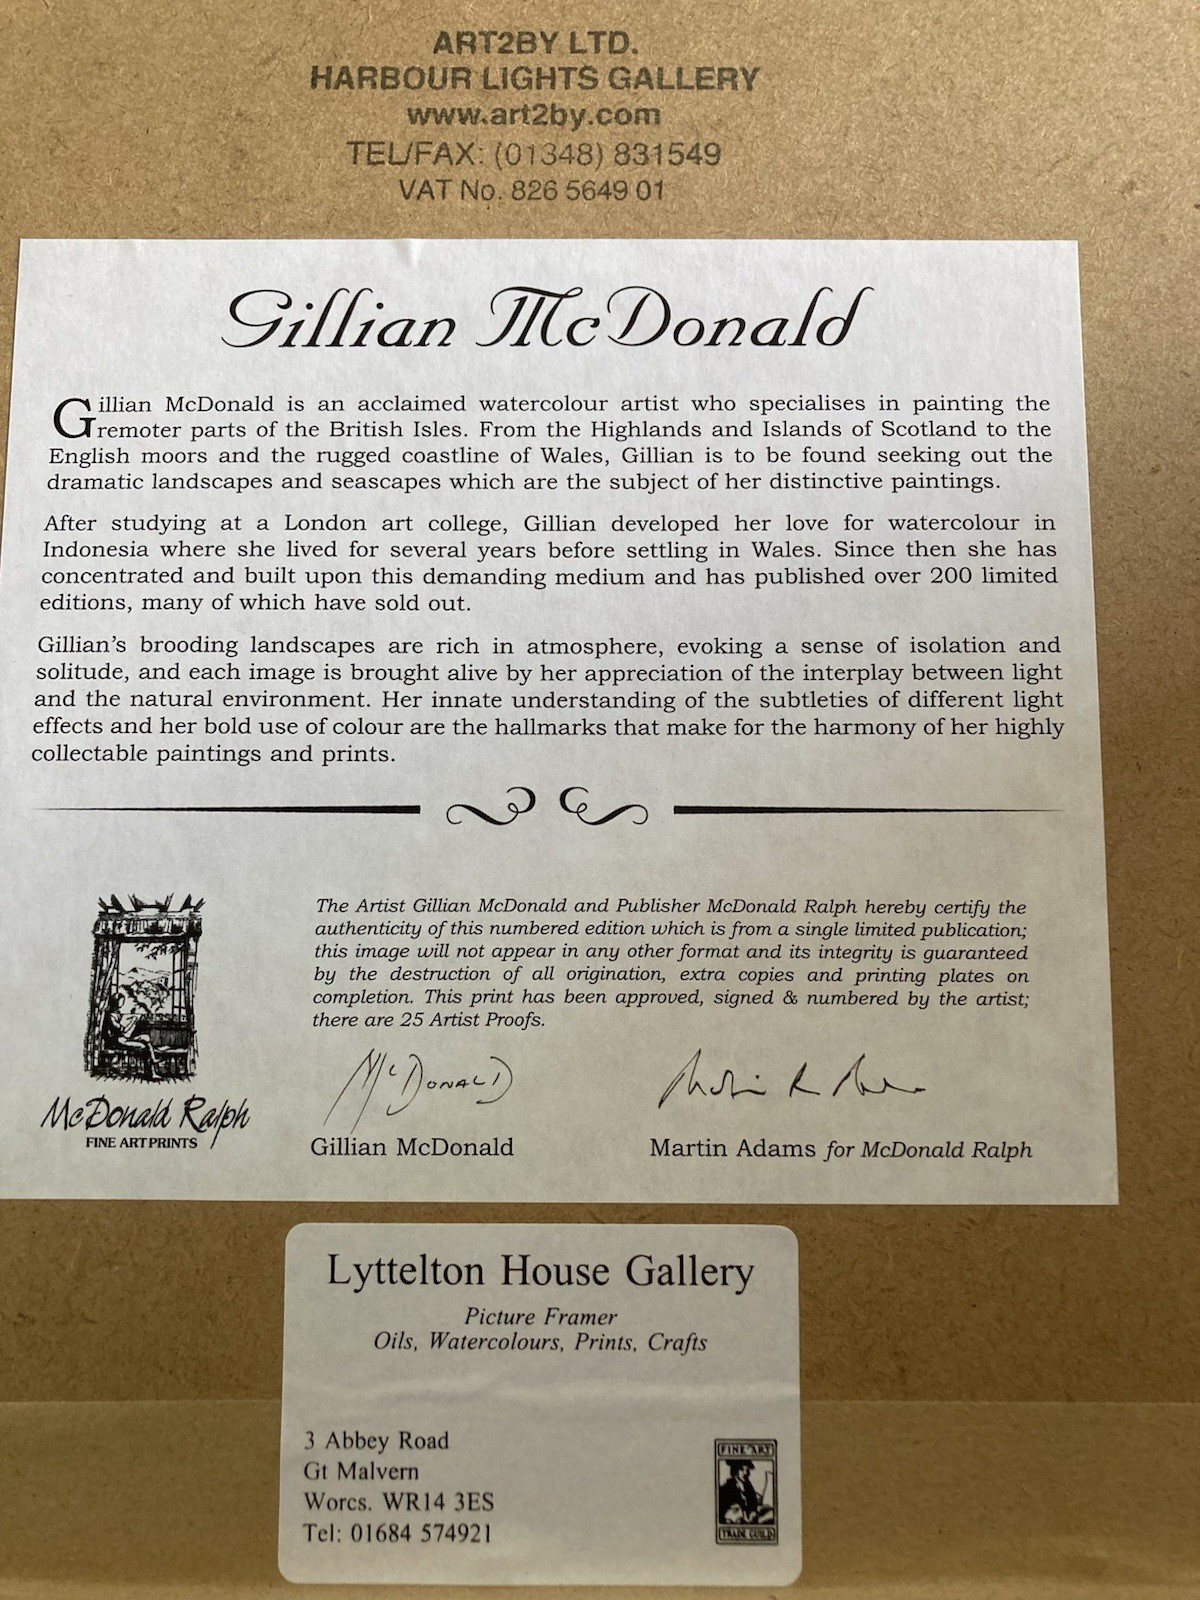 ART2BY LTD.
HARBOUR LIGHTS GALLERY
www.art2by.com
TEL/FAX: (01348) 831549
VAT No. 826 5649 01
Gillian McDonald
Gillian McDonald is an acclaimed watercolour artist who specialises in painting the
remoter parts of the British Isles. From the Highlands and Islands of Scotland to the
English moors and the rugged coastline of Wales, Gillian is to be found seeking out the
dramatic landscapes and seascapes which are the subject of her distinctive paintings.
After studying at a London art college, Gillian developed her love for watercolour in
Indonesia where she lived for several years before settling in Wales. Since then she has
concentrated and built upon this demanding medium and has published over 200 limited
editions, many of which have sold out.
Gillian's brooding landscapes are rich in atmosphere, evoking a sense of isolation and
solitude, and each image is brought alive by her appreciation of the interplay between light
and the natural environment. Her innate understanding of the subtleties of different light
effects and her bold use of colour are the hallmarks that make for the harmony of her highly
collectable paintings and prints.
The Artist Gillian McDonald and Publisher McDonald Ralph hereby certify the
authenticity of this numbered edition which is from a single limited publication;
this image will not appear in any other format and its integrity is guaranteed
by the destruction of all origination, extra copies and printing plates on
completion. This print has been approved, signed & numbered by the artist;
there are 25 Artist Proofs.
McDonald Ralph
FINE ART PRINTS
McDONALD
Gillian McDonald
Martin Adams for McDonald Ralph
Lyttelton House Gallery
Picture Framer
Oils, Watercolours, Prints, Crafts
3 Abbey Road
Gt Malvern
Worcs. WR14 3ES
Tel: 01684 574921
FINE ART
TRADE GUILD